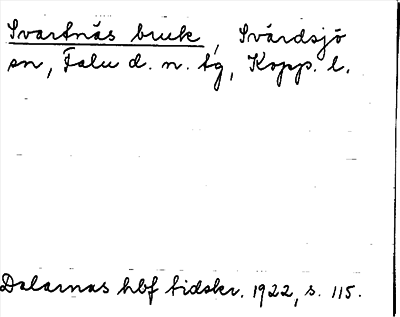 Svartnäs bruk, Svärdsjö
sn, Falu d. n. tg, Kopp. l.
Dalarnas hbf tidskr. 1922, s. 115.